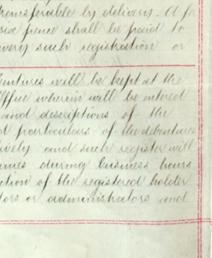 transferable by delivery. A f
pence shall be paid to
every such registration or
entures will be kept at the
Office wherein will be entered
and descriptions of the
particulars of the debentures
tively and such register will
during business hours
ction of the registered holder
tors or administrators and